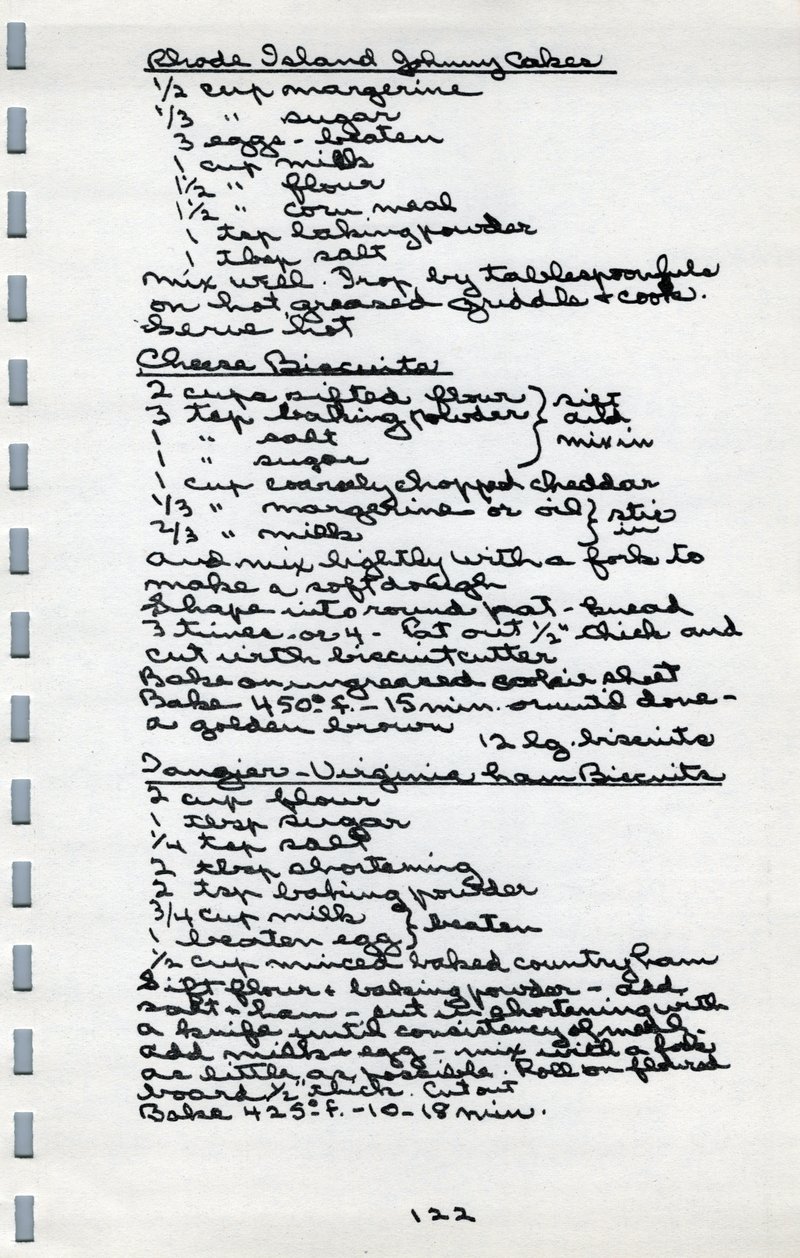 Rhode Island Johnny Cakes
1/2 cup margerine
1/3 " sugar
3 eggs - beaten
1 cup milk
1 1/2 " flour
1 1/2 " corn meal
1 tsp baking powder
1 tbsp salt
mix well. Drop by tablespoonfuls
on hot, greased griddle + cook.
Serve hot
Cheese Biscuits
2 cups sifted flour } sift
3 tsp baking powder } and
1 " salt } mix in
1 " sugar
1 cup coarsely chopped cheddar
1/3 " margerine or oil } stir
2/3 " milk } in
and mix lightly with a fork to
make a soft dough
Shape into round pat - knead
3 times or 4 - Pat out 1/2" thick and
cut with biscuit cutter
Bake on ungreased cookie sheet
Bake 450° f. - 15 min. or until done -
a golden brown
12 lg. biscuits
Tangier - Virginia ham Biscuits
2 cup flour
1 tbsp sugar
1/4 tsp salt
2 tbsp shortening
2 tsp baking powder
3/4 cup milk } beaten
1 beaten egg }
1/2 cup minced baked country ham
Sift flour + baking powder - add
salt + ham - cut in shortening with
a knife until consistency of meal.
add milk + egg - mix with a fork
as little as possible. Roll on floured
board 1/2" thick. Cut out
Bake 425° f. - 10 - 18 min.
122